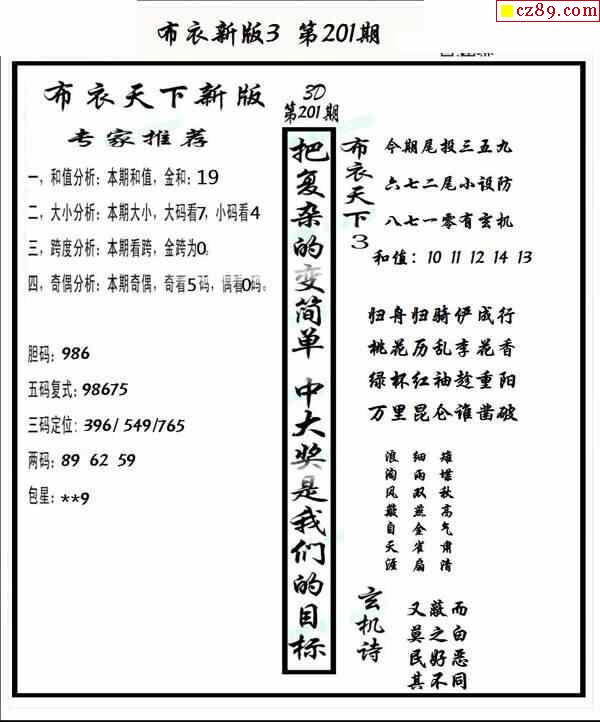 cz89.com
布衣新版3 第201期
布衣天下新版
专家推荐
一，和值分析：本期和值，金和：19
二，大小分析：本期大小，大码看7，小码看4
三，跨度分析：本期看跨，金跨为0。
四，奇偶分析：本期奇偶，奇看5码，偶看0码。
胆码：986
五码复式：98675
三码定位：396/549/765
两码：89 62 59
包星：**9
3D
第201期
把复杂的变简单 中大奖是我们的目标
布衣天下3
今期尾投三五九
六七二尾小设防
八七一零有玄机
和值：10 11 12 14 13
归舟归骑俨成行
桃花历乱李花香
绿杯红袖趁重阳
万里昆仑谁凿破
雄堞秋高气肃清
细雨双燕金雀扇
浪淘风簸自天涯
玄机诗
又蔽而
莫之白
民好恶
其不同